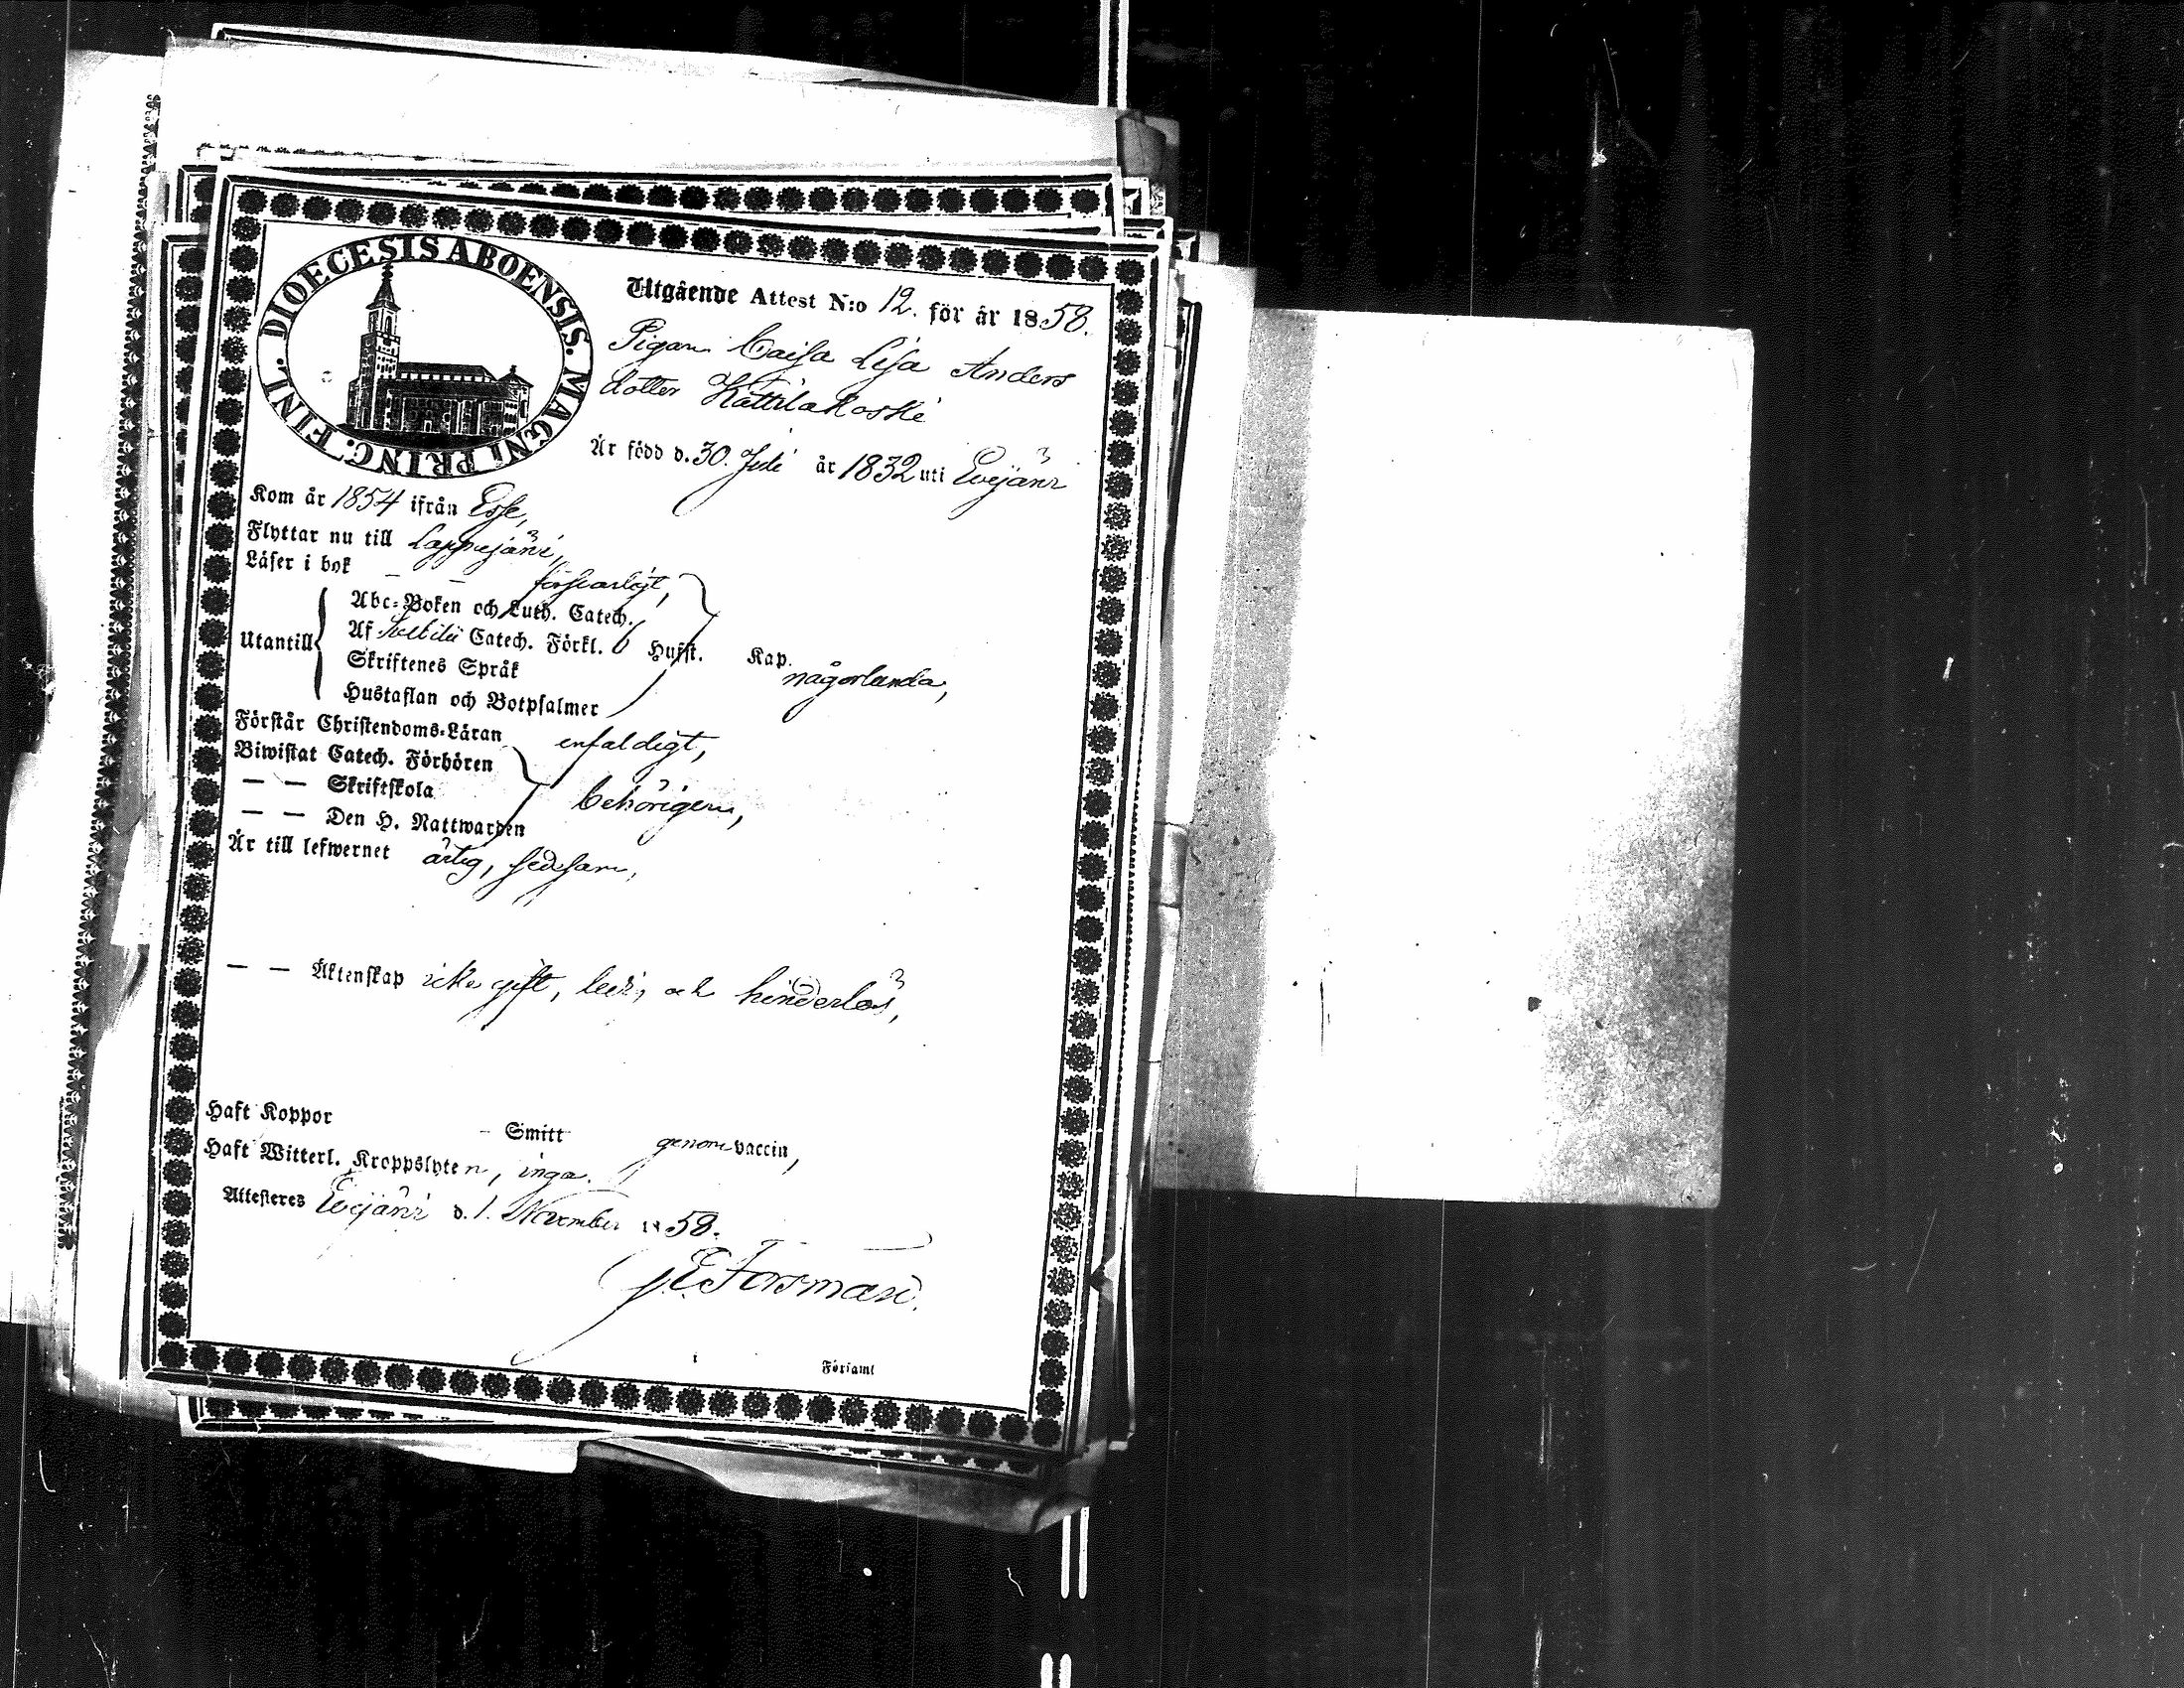 DIOECESIS ABOENSIS. MAGNI PRINC. FINL.
Utgående Attest N:o 12. för år 1858.
Pigan Caisa Lisa Anders
dotter Kattilakoski
Är född d. 30. Juli år 1832 uti Evijärvi
Kom år 1854 ifrån Esse,
Flyttar nu till Lappajärvi,
Läser i bok — — försvarligt,
Utantill
Abc-Boken och Luth. Catech.
Af Svebilii Catech. Förkl. 6 Hufst. Kap. någorlunda,
Skriftenes Språk
Hustaflan och Botpsalmer
Förstår Christendoms-Läran enfaldigt,
Biwistat Catech. Förhören
— — Skriftskola behörigen,
— — Den H. Nattwarden
Är till lefwernet artig, sedesam,
— — Äktenskap icke gift, ledig och hinderlös,
Haft Koppor — Smitt genom vaccin,
Haft Witterl. Kroppslyten, inga.
Attesteres Evijärvi d. 1. November 1858.
J. E. Forsman.